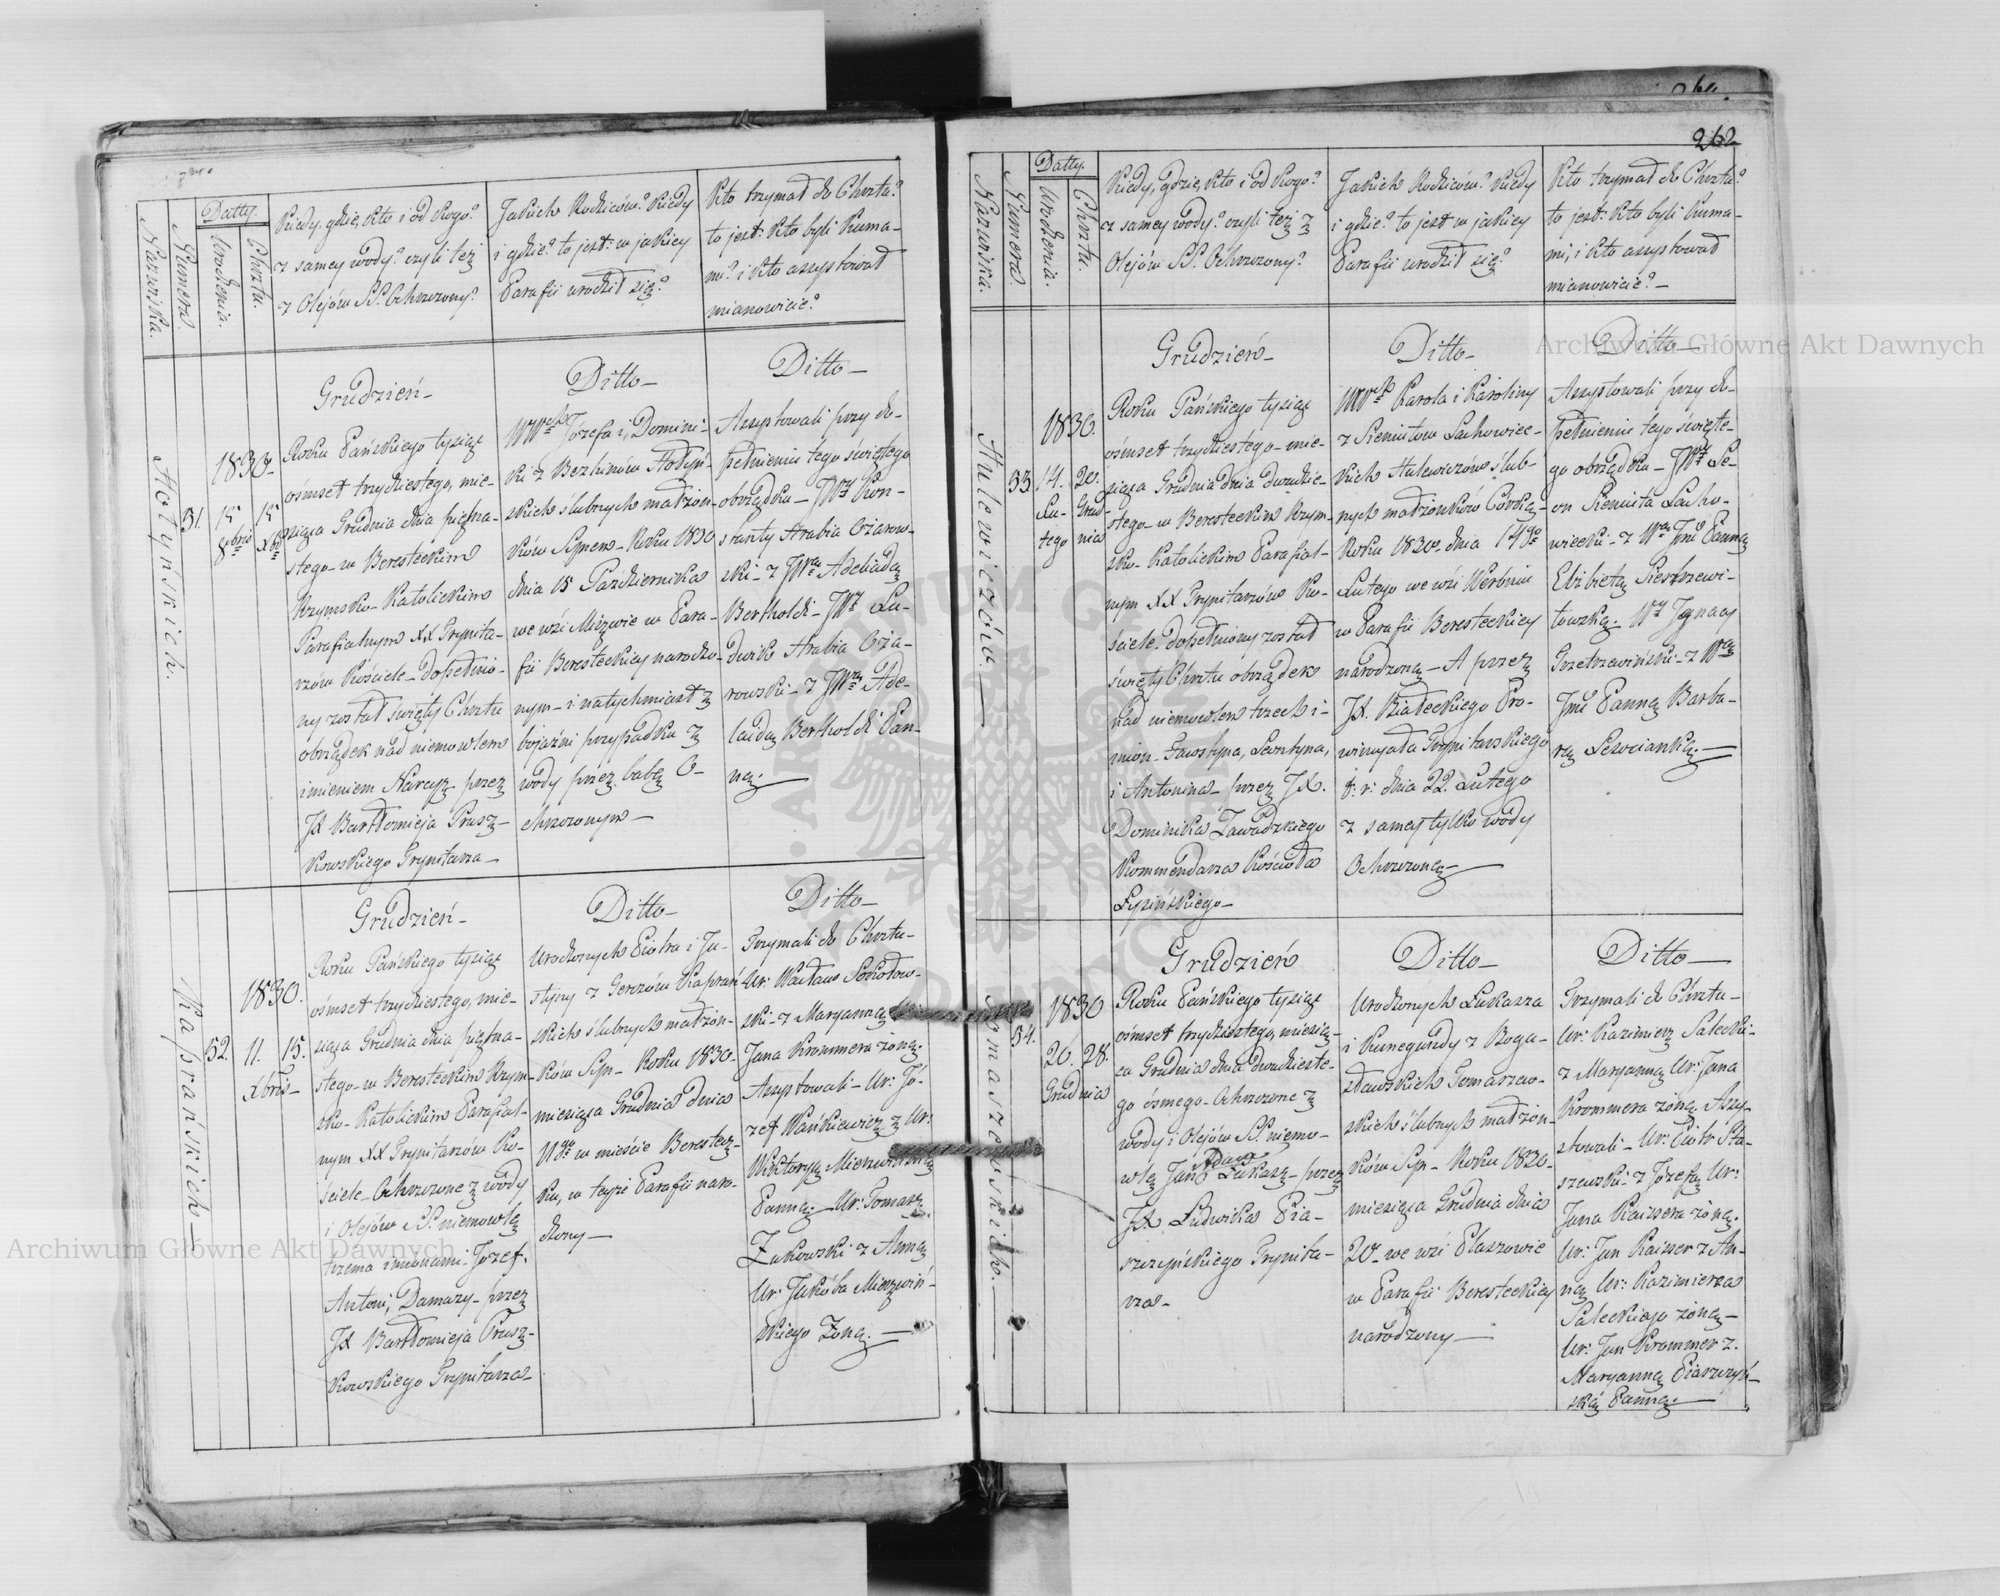 262
Nazwiska.
Numera.
Datty.
Urodzenia.
Chrztu.
Kiedy, gdzie, kto i od kogo?
z samey wody? czyli też
z Olejów SS. Ochrzczony?
Jakich Rodziców? kiedy
i gdzie? to jest: w jakiey
Parafii urodził się?
Kto trzymał do Chrztu?
to jest: kto byli Kuma-
mi? i kto assystował
mianowicie?
Hołyńskich.
51.
1830.
15
8bris
15
Xbris
Grudzień-
Roku Pańskiego tysiąc
ośmset trzydziestego, mie-
siąca Grudnia dnia piętna-
stego w Beresteckim
Rzymsko-Katolickim
Parafialnym XX Trynita-
rzów Kościele dopełnio-
ny został święty Chrztu
obrządek nad niemowlem
imieniem Narcyz przez
JX Bartłomieja Prusz-
kowskiego Trynitarza-
Ditto-
Józefa i Domini-
ki z Hołyń-
skich ślubnych małżon-
ków Synem- Roku 1830
dnia 15 Października
we wsi Mizwie w Para-
fii Beresteckiey narodzo-
nym- i natychmiast z
bojaźni przypadku z
wody przez babę O-
chrzczonym-
Ditto-
Assystowali przy do-
pełnieniu tego świętego
obrządku- JWy Kon-
stanty Hrabia Ożarow-
ski- z JWną Adelaidą
Bertholdi- JWy Lu-
dwik Hrabia Oża-
rowski- z JWną Ade-
laidą Bertholdi Pan-
ną.-
Kaprańskich-
52.
1830.
11.
15.
Xbris-
Grudzień-
Roku Pańskiego tysiąc
ośmset trzydziestego, mie-
siąca Grudnia dnia piętna-
stego- w Beresteckim Rzym-
sko-Katolickim Parafial-
nym XX Trynitarzów Ko-
ściele- Ochrzczone z wody
i Olejów SS. niemowlę
trzema imionami- Józef,
Antoni, Damazy- przez
JX Bartłomieja Prusz-
kowskiego Trynitarza-
Ditto-
Urodzonych Piotra i Ju-
styny z Gerczów Kaprań-
skich ślubnych małżon-
ków Syn- Roku 1830.
miesiąca Grudnia dnia
11go w mieście Berestecz-
ku, w teyże Parafii naro-
dzony-
Ditto-
Trzymali do Chrztu-
Ur: Wacław Sokołow-
ski- z Maryanną
Jana Krommera żoną.
Assystowali- Ur: Jó-
zef Wańkiewicz z Ur:
Wiktoryą
Panną.- Ur: Tomasz
Żukowski z Anną
Ur: Jakóba Mierzwiń-
skiego Żoną.-
Nazwiska.
Numera
Datty.
Urodzenia.
Chrztu.
Kiedy, gdzie, kto i od kogo?
z samey wody? czyli też z
Olejów SS. Ochrzczony?
Jakich Rodziców? kiedy
i gdzie? to jest w jakiey
Parafii urodził się?
Kto trzymał do Chrztu?
to jest: kto byli Kuma-
mi, i kto assystował
mianowicie?-
Hulewiczów-
53.
1830.
14.
Lu-
tego
20.
Grud-
nia
Grudzień-
Roku Pańskiego tysiąc
ośmset trzydziestego- mie-
siąca Grudnia dnia dwudzie-
stego- w Beresteckim Rzym-
sko-Katolickim Parafial-
nym XX Trynitarzów Ko-
ściele- dopełniony został
święty Chrztu obrządek
nad niemowlem trzech i-
mion- Fawstyna, Leontyna,
i Antonina- przez JX.
Dominika Zawadzkiego
Kommendarza Kościoła
Łysińskiego-
Ditto-
Karola i Karoliny
z Sieniutów Lachowiec-
kich Hulewiczów ślub-
nych małżonków Córką-
Roku 1830. dnia 14go
Lutego we wsi Werbniu
w Parafii Beresteckiey
narodzoną- A przez
JX. Białeckiego Pro-
wincyała Trynitarskiego
t: r: dnia 22. Lutego
z samey tylko wody
Ochrzczoną-
Ditto-
Assystowali przy do-
pełnieniu tego święte-
go obrządku- JWy Le-
on Sieniuta Lacho-
wiecki- z Wną Jmć Panną
Elżbietą
Wy Ignacy
z Wną
Jmć Panną Barba-
rą
Tomaszewskich.-
54.
1830
20.
28.
Grudnia
Grudzień
Roku Pańskiego tysiąc
ośmset trzydziestego, miesią-
ca Grudnia dnia dwudzieste-
go ósmego- Ochrzczone z
wody i Olejów SS. niemo-
Adam
wlę Jan Łukasz- przez
JX Ludwika Pia-
szczyńskiego Trynita-
rza-
Ditto-
Urodzonych Łukasza
i Kunegundy z Boga-
sławskich Tomaszew-
skich ślubnych małżon-
ków Syn- Roku 1830.
miesiąca Grudnia dnia
20. we wsi Płaszowie
w Parafii Beresteckiey
narodzony-
Ditto-
Trzymali do Chrztu-
Ur: Kazimierz Salecki-
z Maryanną Ur: Jana
Krommera żoną Assy-
stowali- Ur: Piotr Sta-
szewski- z Józefą Ur:
Jana Kaisera żoną.
Ur: Jan Kaiser z An-
ną Ur: Kazimierza
Saleckiego żoną-
Ur: Jan Krommer z.
Maryanną Piaszczyń-
ską Panną.-
Archiwum Główne Akt Dawnych
Archiwum Główne Akt Dawnych